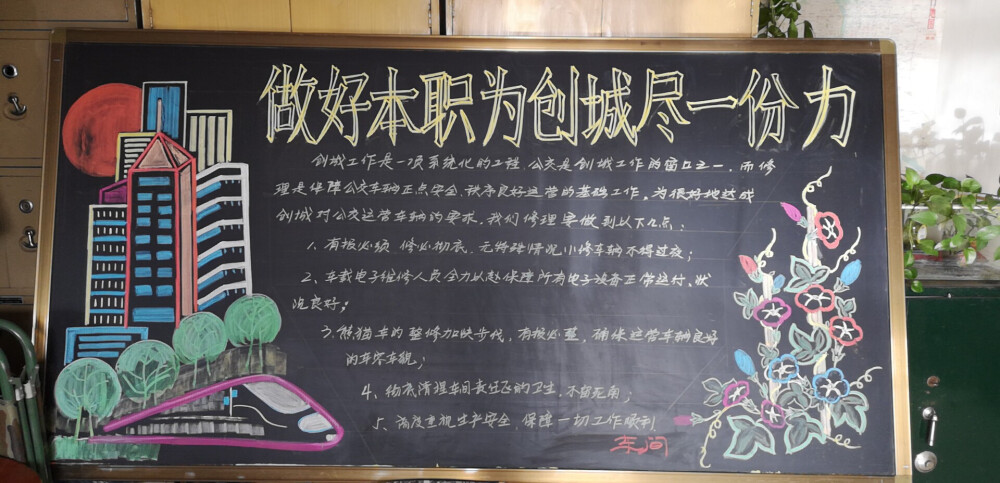 做好本职为创城尽一份力
创城工作是一项系统化的工程,公交是创城工作的窗口之一,而修
理是保障公交车辆正点安全、秩序良好运营的基础工作。为很好地达成
创城对公交运营车辆的要求,我们修理要做到以下几点:
1、有报必须 修必彻底,无特殊情况小修车辆不得过夜;
2、车载电子维修人员全力以赴保障所有电子设备正常运行、状
况良好;
3、熊猫车的整修加快步伐,有报必整,确保运营车辆良好
的车容车貌;
4、彻底清理车间责任区的卫生,不留死角;
5、高度重视生产安全,保障一切工作顺利
车间